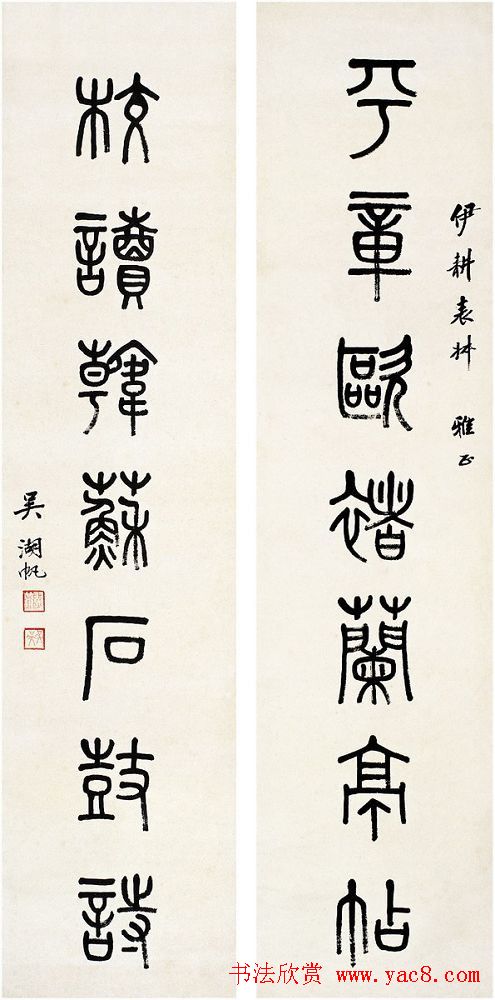 伊耕表叔 雅正
平章歐褚蘭亭帖
校讀韓蘇石鼓詩
吳湖帆
书法欣赏 www.yac8.com